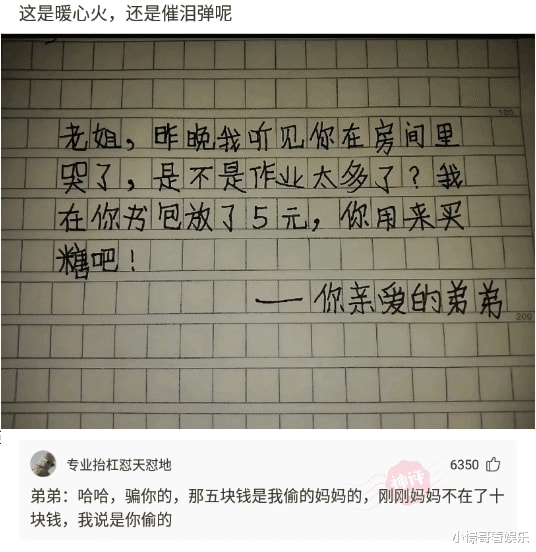 这是暖心火，还是催泪弹呢
100
老姐，昨晚我听见你在房间里
哭了，是不是作业太多了？我
在你书包放了5元，你用来买
糖吧！
——你亲爱的弟弟
200
专业抬杠怼天怼地
6350
神评
弟弟：哈哈，骗你的，那五块钱是我偷的妈妈的，刚刚妈妈不在了十
块钱，我说是你偷的
小惊哥看娱乐